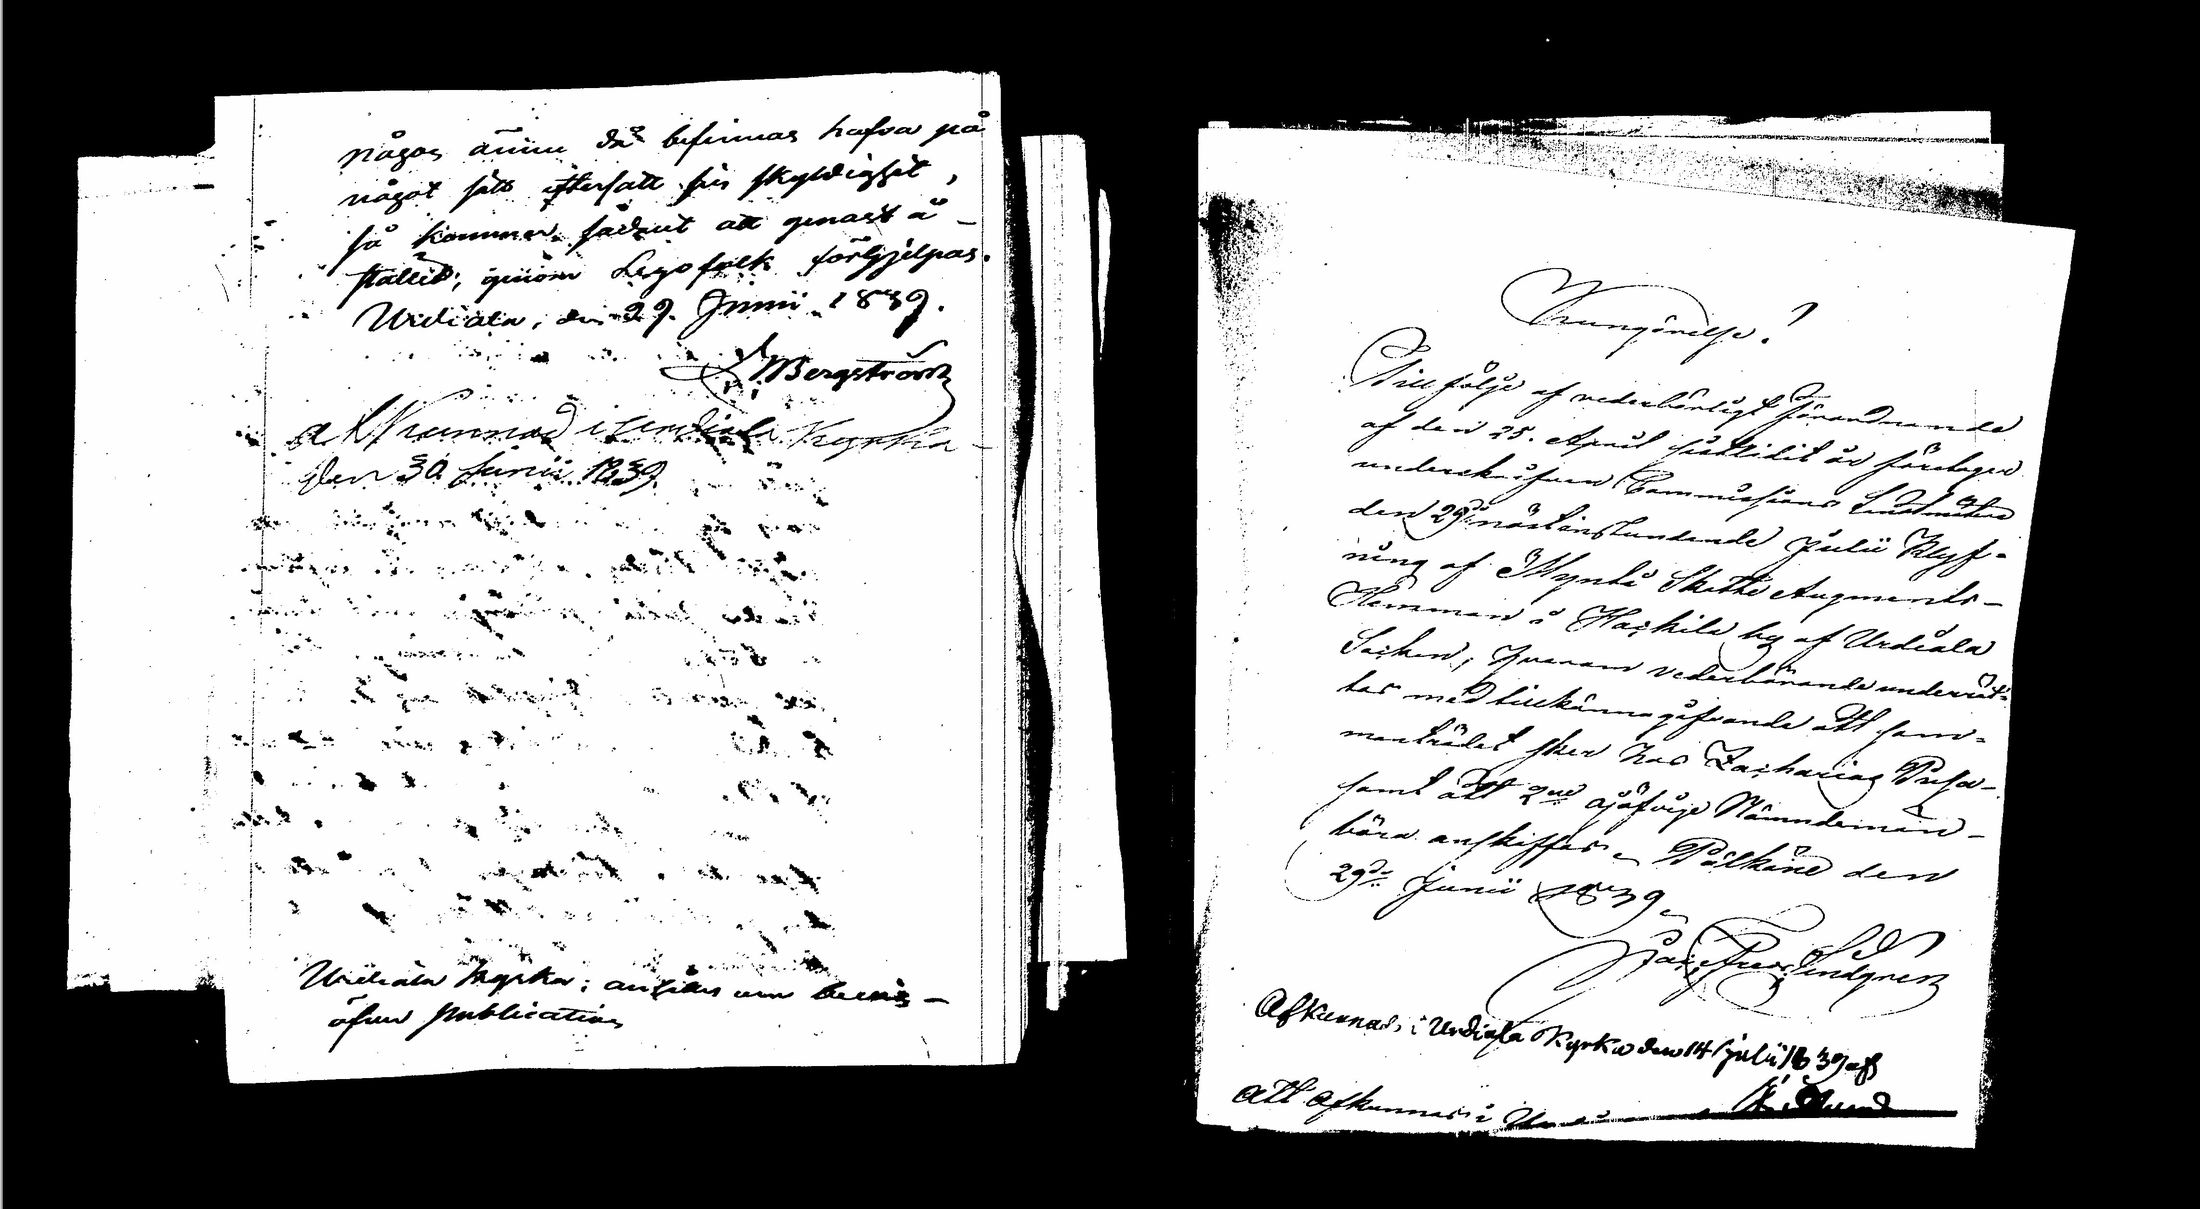 någon ännu då befinnas hafva på
något sätt eftersatt sin skyldighet,
så kommer sådant att genast å
stället, genom Legofolk förhjelpas.
Urdiala, den 29. Junii 1839.
Bergström
Urdiala Kyrka
den 30 Junii 1839.
Urdiala kyrka; anhålles om bevis
öfver publication
Kungörelse!
Till följe af vederbörligt förordnande
af den 25. April sistlidit år företager
underskrifven Commissions Landtmätare
den 29de nästinstundande Julii Klyf-
ning af Myntti Skatte Augments-
Hemman i Hackila by af Urdiala
Socken; hvarom vederbörande underrät-
tas med tillkännagifvande att sam-
manträdet sker hos Zacharias
samt att 2ne ojäfvige Nämndemän
böra anskaffas. Pälkäne den
29de Junii 1839.
Lindgren
Afkunnad i Urdiala Kyrka den 14 julii 1839 af
Att afkunnas i